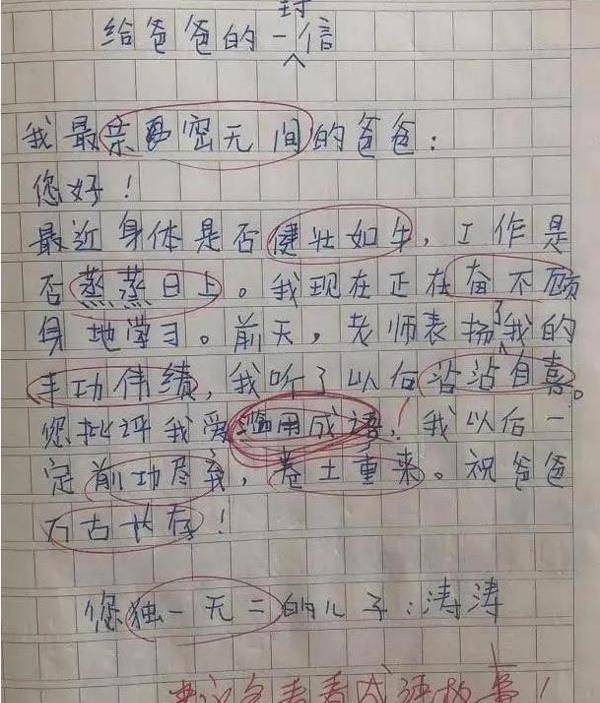 给爸爸的一封信
我最亲密无间的爸爸：
您好！
最近身体是否健壮如牛，工作是
否蒸蒸日上。我现在正在奋不顾
身地学习。前天，老师表扬了我的
丰功伟绩，我听了以后沾沾自喜。
您批评我爱滥用成语，我以后一
定前功尽弃，卷土重来。祝爸爸
万古长存！
您独一无二的儿子：涛涛
建议多看看成语故事！